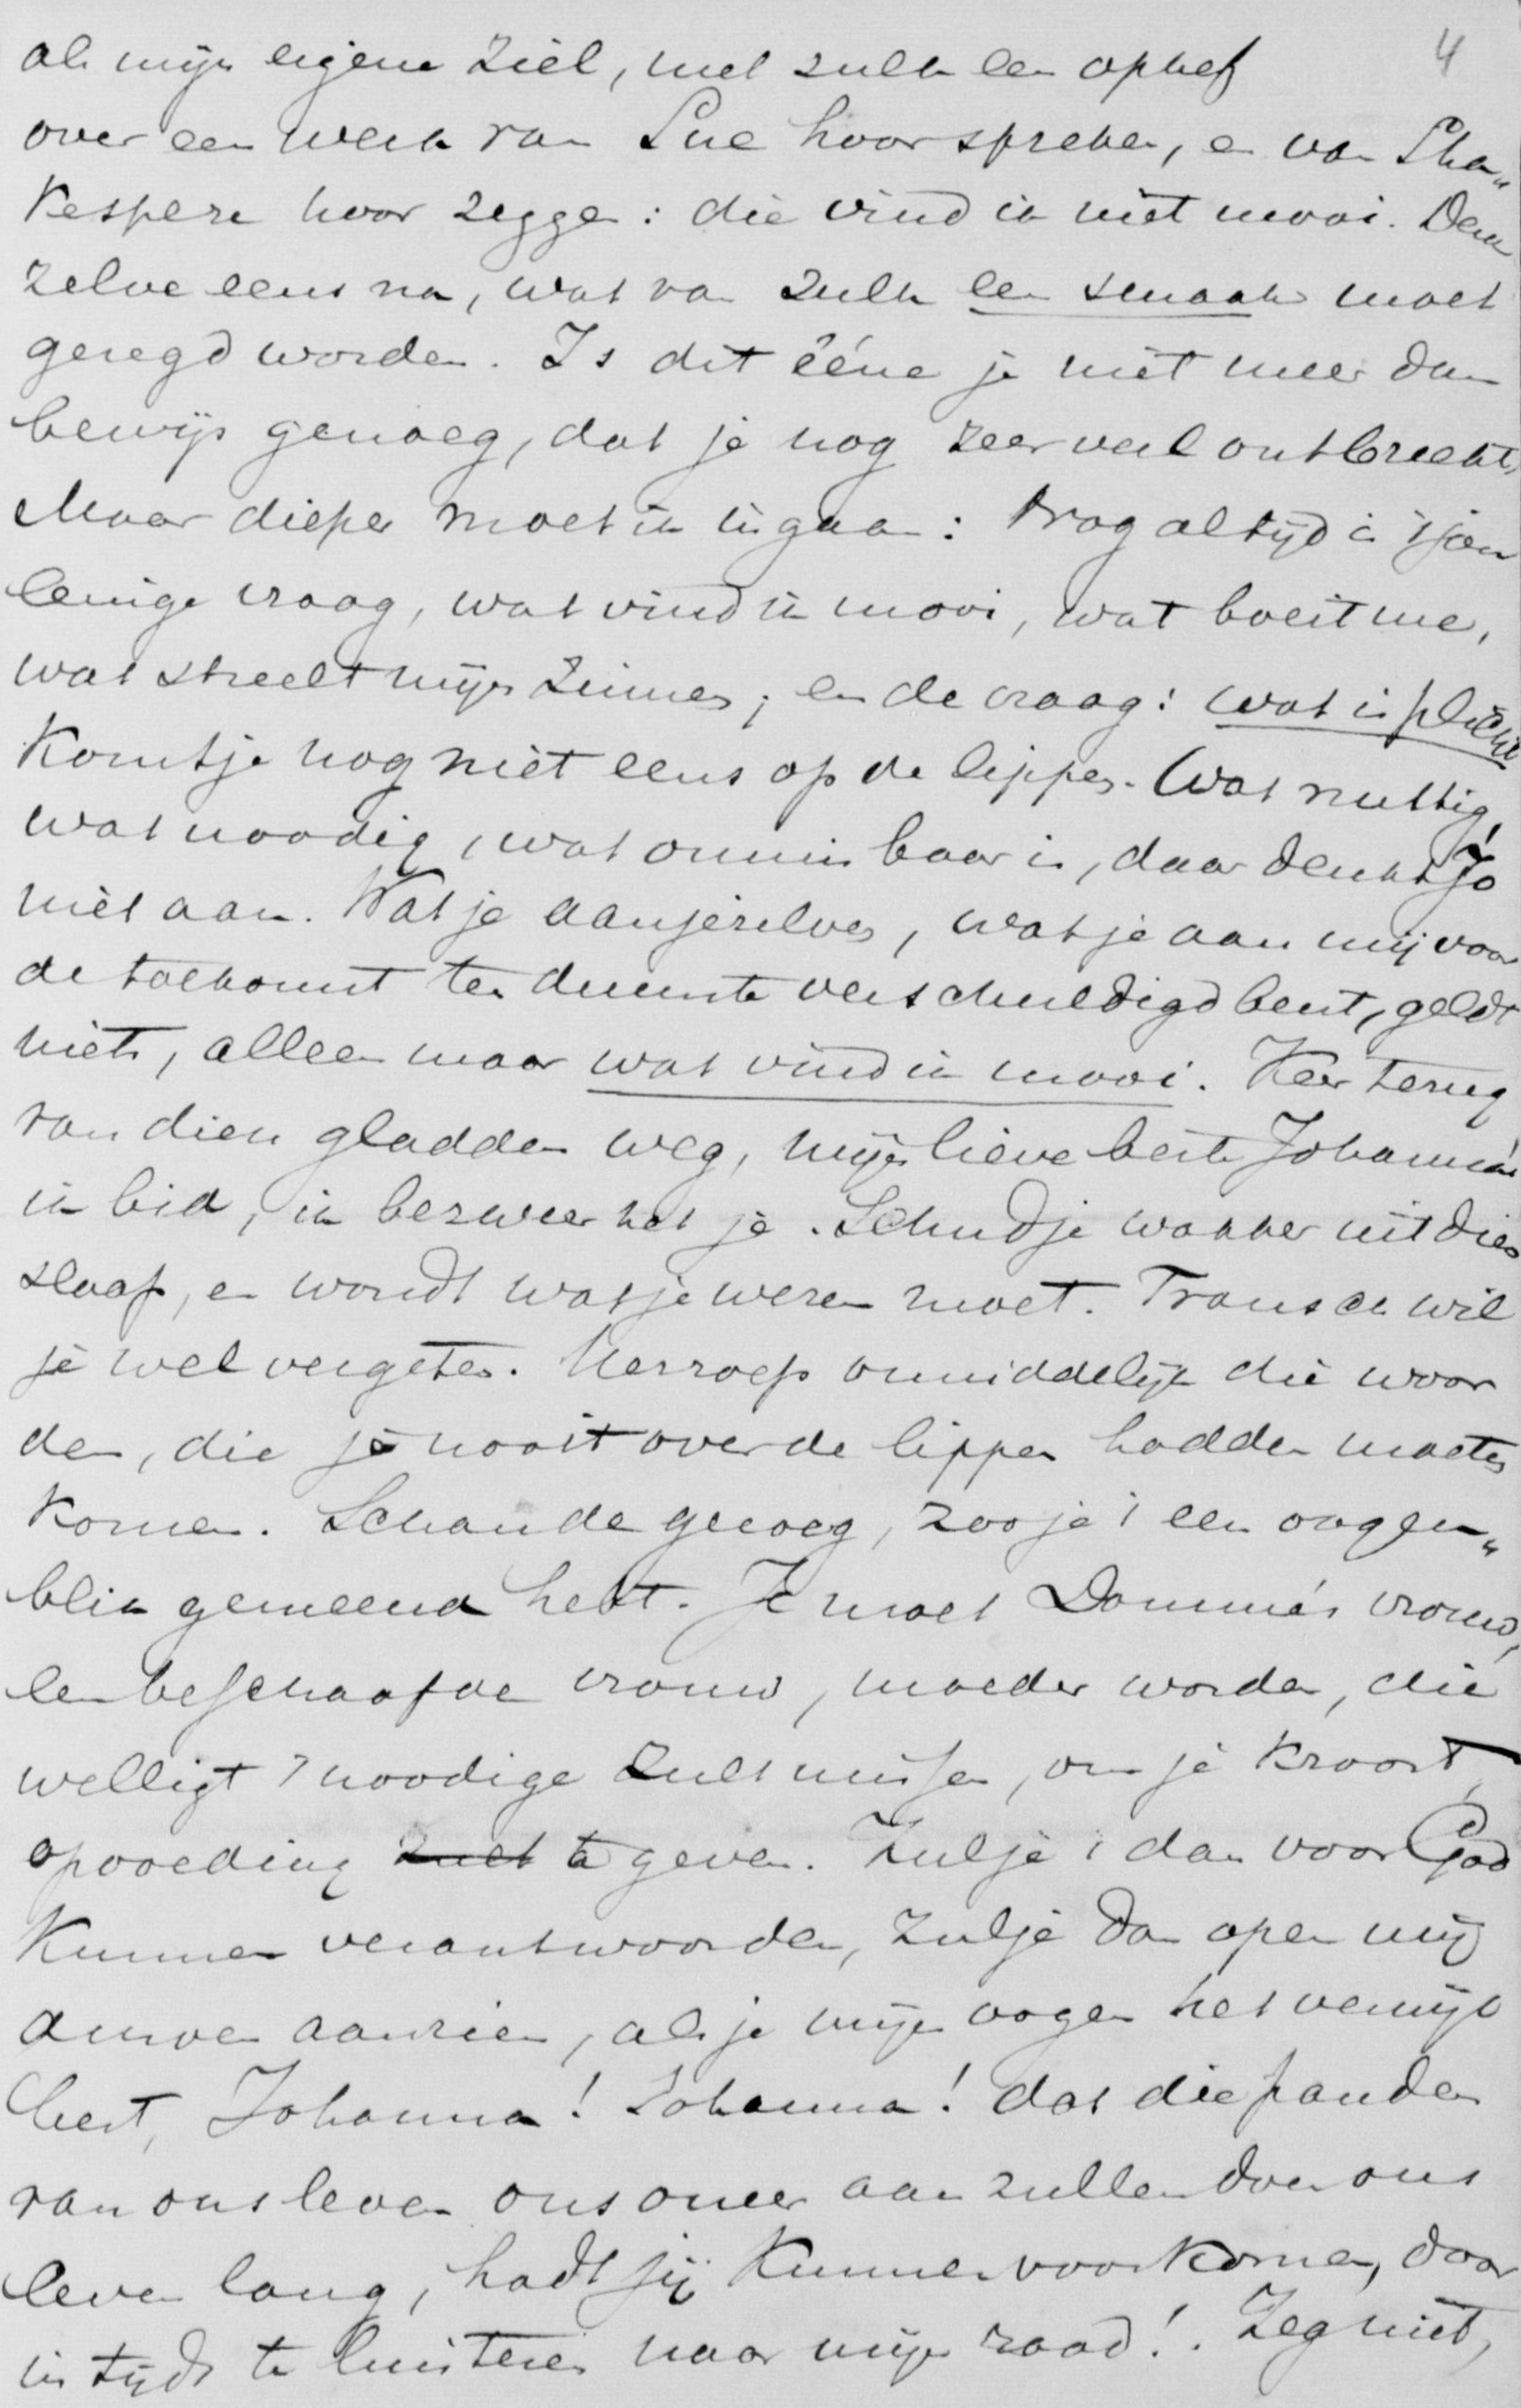 4
als mijn eigene ziel, met zulk een ophef
over een werk van Sue hoor spreken, en van Sha„
kespere hoor zeggen: die vind ik niet mooi. Denk
zelve eens na, wat van zulk een smaak moet
gezegd worden. Is dit ééne je niet meer dan
bewijs genoeg, dat je nog zeer veel ontbreekt,
Maar dieper moet ik ingaan: vrag altijd is jou
eenige vraag, wat vind ik mooi, wat boeit me,
wat streelt mijn zinnen; en de vraag: wat is plicht
komt je nog niet eens op de lippen. Wat nuttig,
wat noodig, wat onmisbaar is, daar denkt Jo
niet aan. Wat je aan jezelven, wat je aan mij voor
de toekomst ten duurste verschuldigd bent, geldt
niets, alleen maar wat vind ik mooi. Keer terug
van dien gladden weg, mijn lieve beste Johanna
ik bid, ik bezweer het je. Schud je wakker uit dien
slaap, en wordt wat je wezen moet. Fransch wil
je wel vergeten. Herroep onmiddelijk die woor
den, die je nooit over de lippen hadden moeten
komen. Schande genoeg, zoo je 't een oogen„
blik gemeend hebt. Je moet Dominé's vrouw,
een beschaafde vrouw, moeder worden, die
welligt 't noodige zult missen, om je kroost
opvoeding zult te geven. Zul je 't dan voor God
kunnen verantwoorden, zul je dan open mij
durven aanzien, als je mijn oogen het verwijt
leest, Johanna! Johanna! dat die panden
van ons leven ons oneer aan zullen doen ons
leven lang, hadt jij kunnen voorkomen, door
in tijds te luisteren naar mijn raad!. Zeg niet,